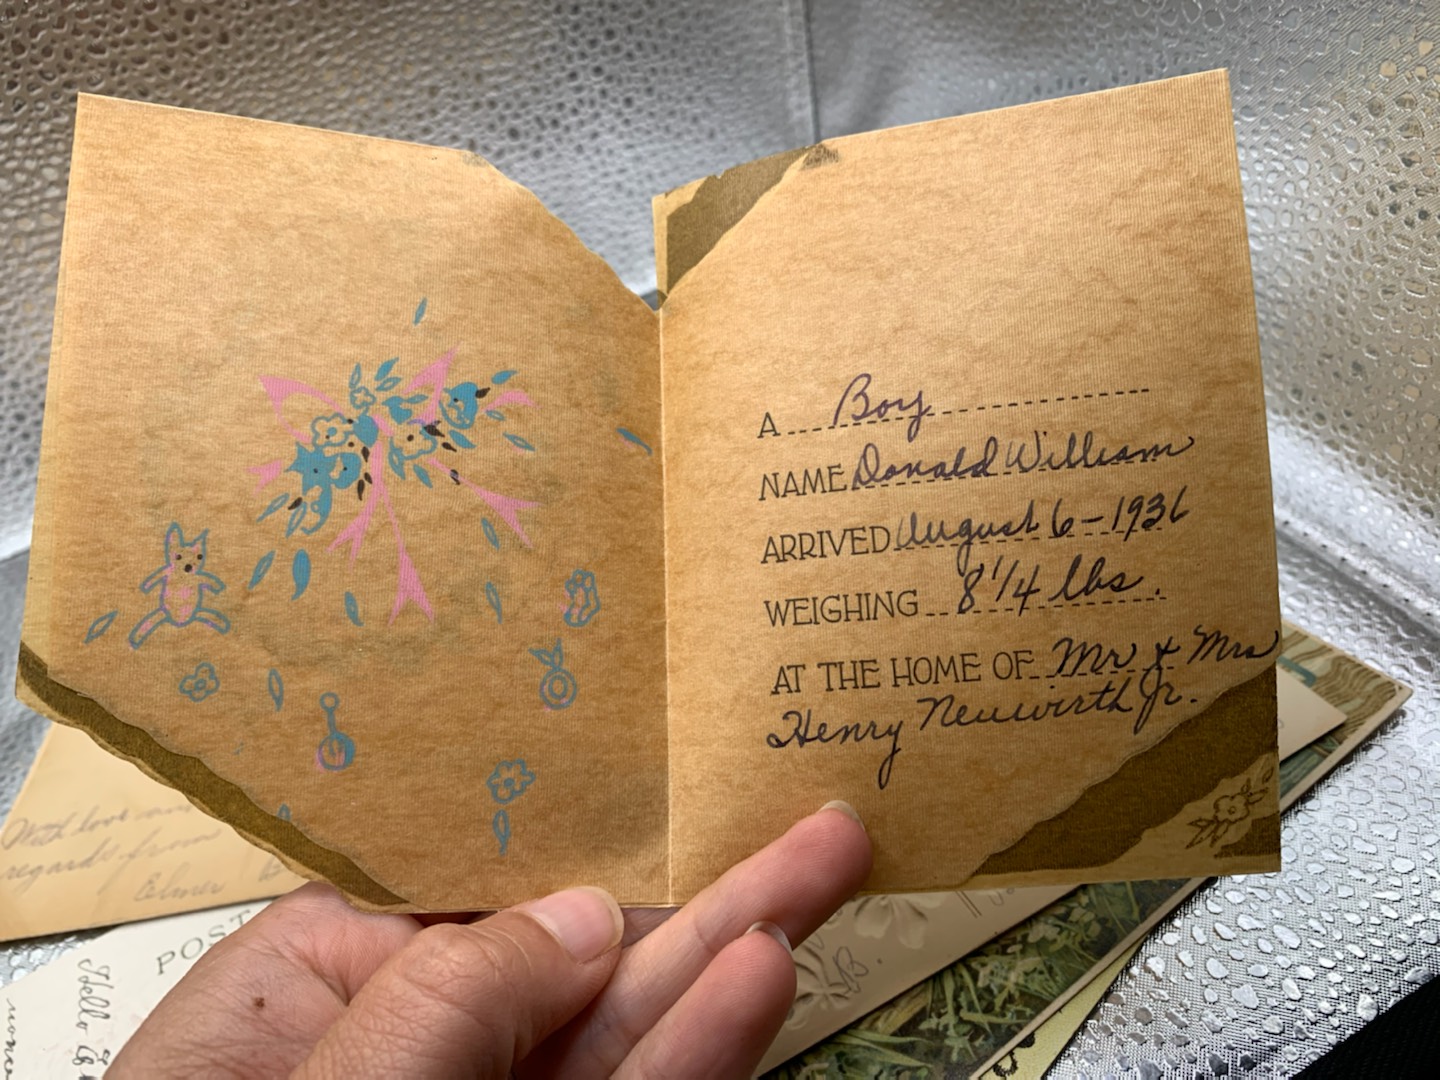 A Boy
NAME Donald William
ARRIVED August 6-1936
WEIGHING 8 1/4 lbs.
AT THE HOME OF Mr & Mrs
Henry Neuwirth Jr.
With love
regards from
Elmer
POST
Hello